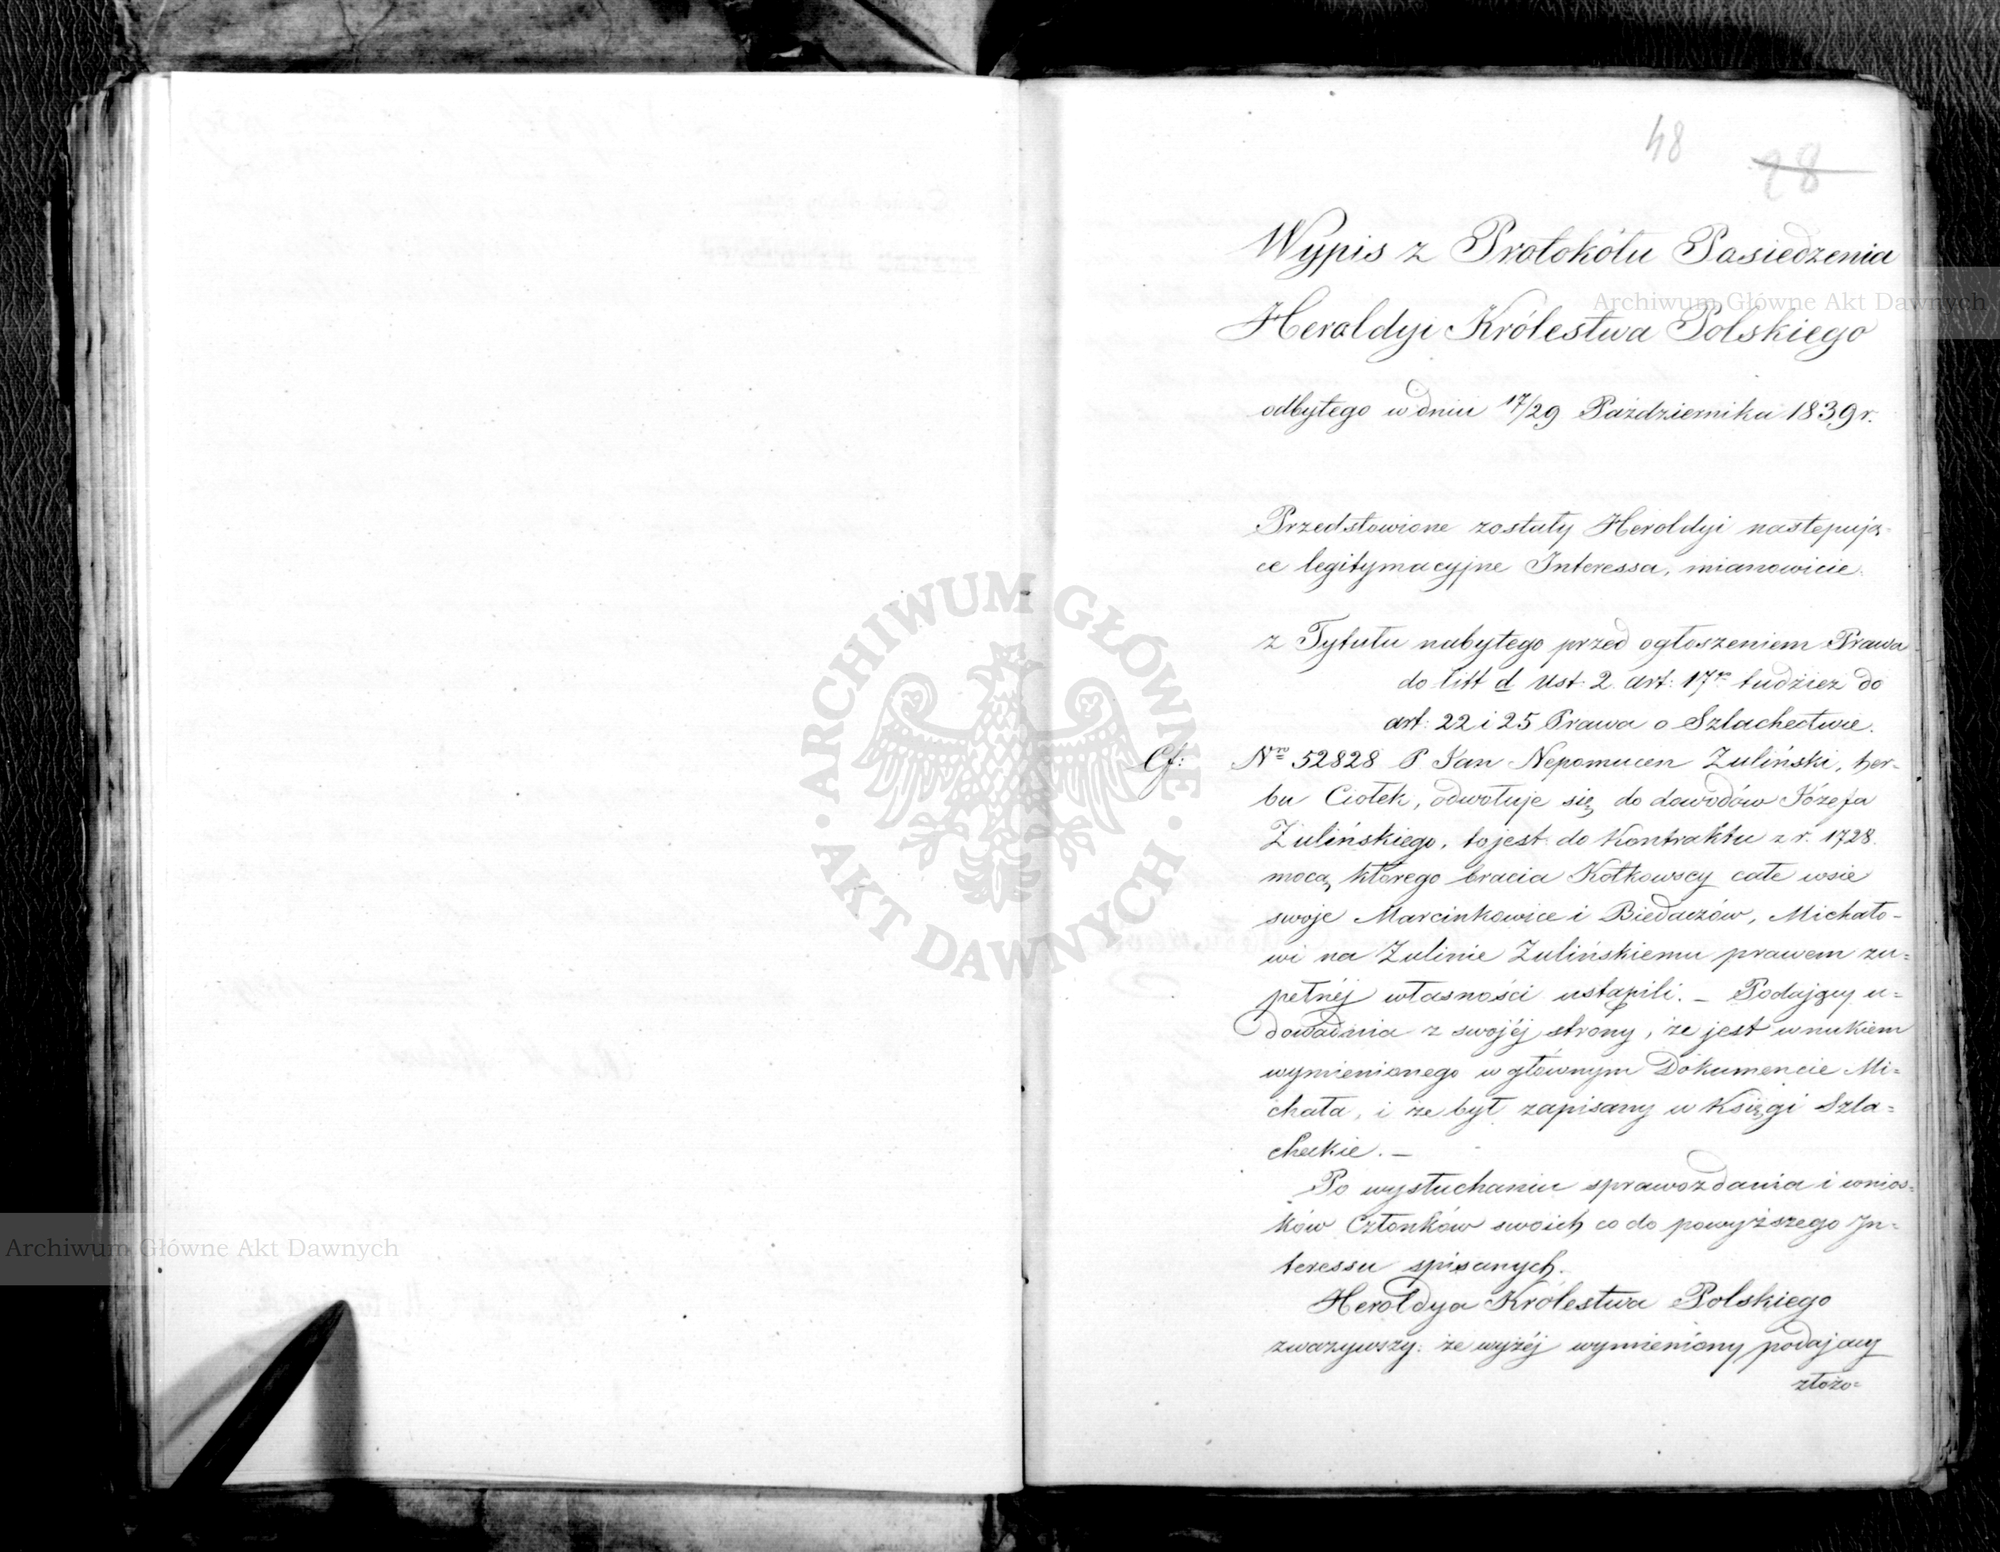 48 28
Wypis z Protokółu Posiedzenia
Heroldyi Królestwa Polskiego
odbytego w dniu 17/29 Października 1839 r.
Przedstawione zostały Heroldyi następują-
ce legitymacyjne Interessa, mianowicie:
z Tytułu nabytego przed ogłoszeniem Prawa
do litt d Ust. 2 art: 17go tudzież do
art: 22 i 25 Prawa o Szlachectwie.
Cf: Nro 52828 P. Jan Nepomucen Żuliński, her-
bu Ciołek, odwołuje się do dowodów Józefa
Żulińskiego, to jest do Kontraktu z r. 1728.
mocą którego bracia Kotkowscy całe wsie
swoje Marcinkowice i Biedaczów, Michało-
wi na Żulinie Żulińskiemu prawem zu=
pełnéj własności ustąpili. — Podający u=
dowadnia z swojéj strony, że jest wnukiem
wymienionego w głównym Dokumencie Mi=
chała, i że był zapisany w Księgi Szla=
checkie. —
Po wysłuchaniu sprawozdania i wnios=
ków Członków swoich co do powyższego In=
teressu spisanych.
Heroldya Królestwa Polskiego
zważywszy: że wyżéj wymieniony podający
złożo=
Archiwum Główne Akt Dawnych
ARCHIWUM GŁÓWNE AKT DAWNYCH
Archiwum Główne Akt Dawnych